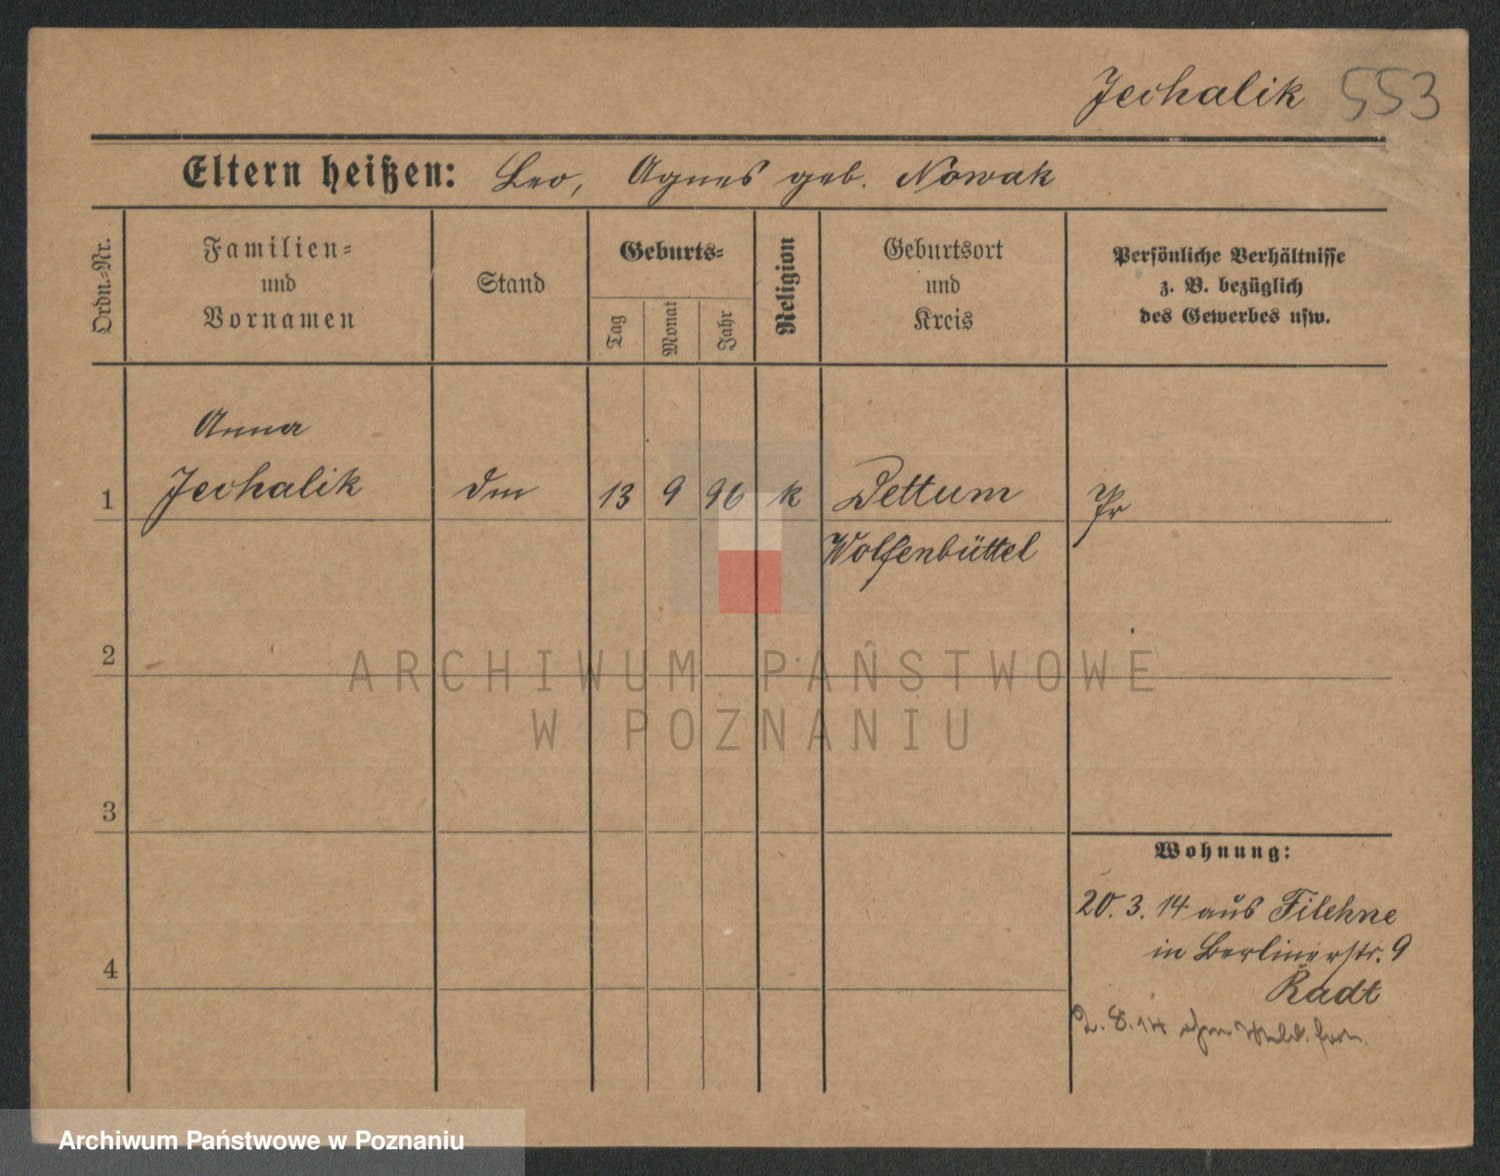 Jechalik 553
Eltern heißen: Leo, Agnes geb. Nowak
Ordn.-Nr.
Familien-
und
Vornamen
Stand
Geburts-
Tag
Monat
Jahr
Religion
Geburtsort
und
Kreis
Persönliche Verhältnisse
z. B. bezüglich
des Gewerbes usw.
Anna
1 Jechalik Dm 13 9 96 k Dettum Pr
Wolfenbüttel
2
3
4
Wohnung:
20. 3. 14 aus Filehne
in Berlinerstr. 9
Radt
2. 8. 14 ohne Meld. fort.
ARCHIWUM PAŃSTWOWE
W POZNANIU
Archiwum Państwowe w Poznaniu